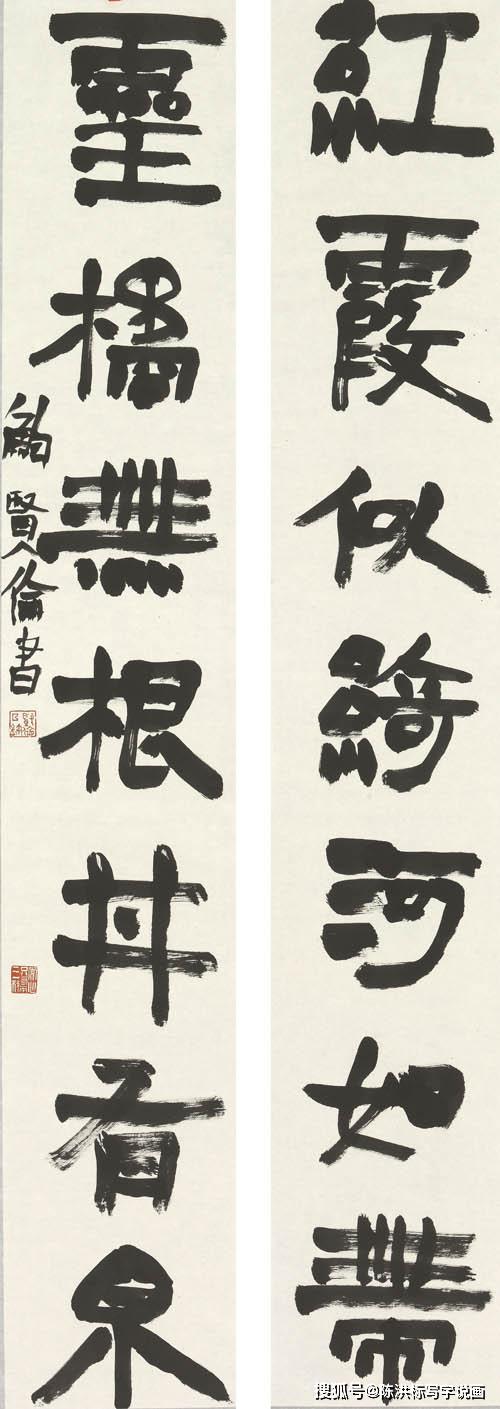 紅霞似綺河如帶
靈橘無根丼有泉
鮑賢倫書
搜狐号@陈洪标写字说画